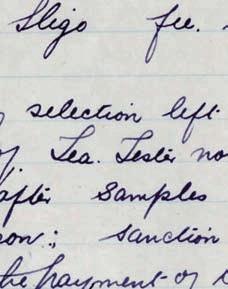 Sligo fee.
selection left
of. Tea. Tester no
after Samples
son:; sanction
the payment of